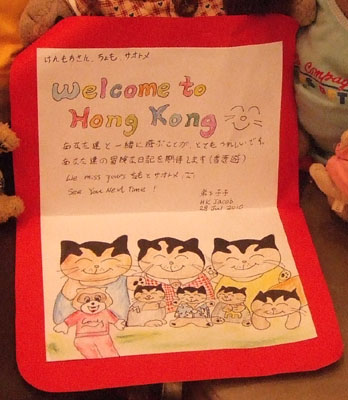 けんもちさん、ちょも、サオトメ
Welcome to
Hong Kong
あなた達と一緒に遊ぶことが、とてもうれしいです。
あなた達の冒険な日記を期待します(香港遊)
We miss yours ちもとサオトメ
See You Next Time!
HK JACOB
28 Jul 2010